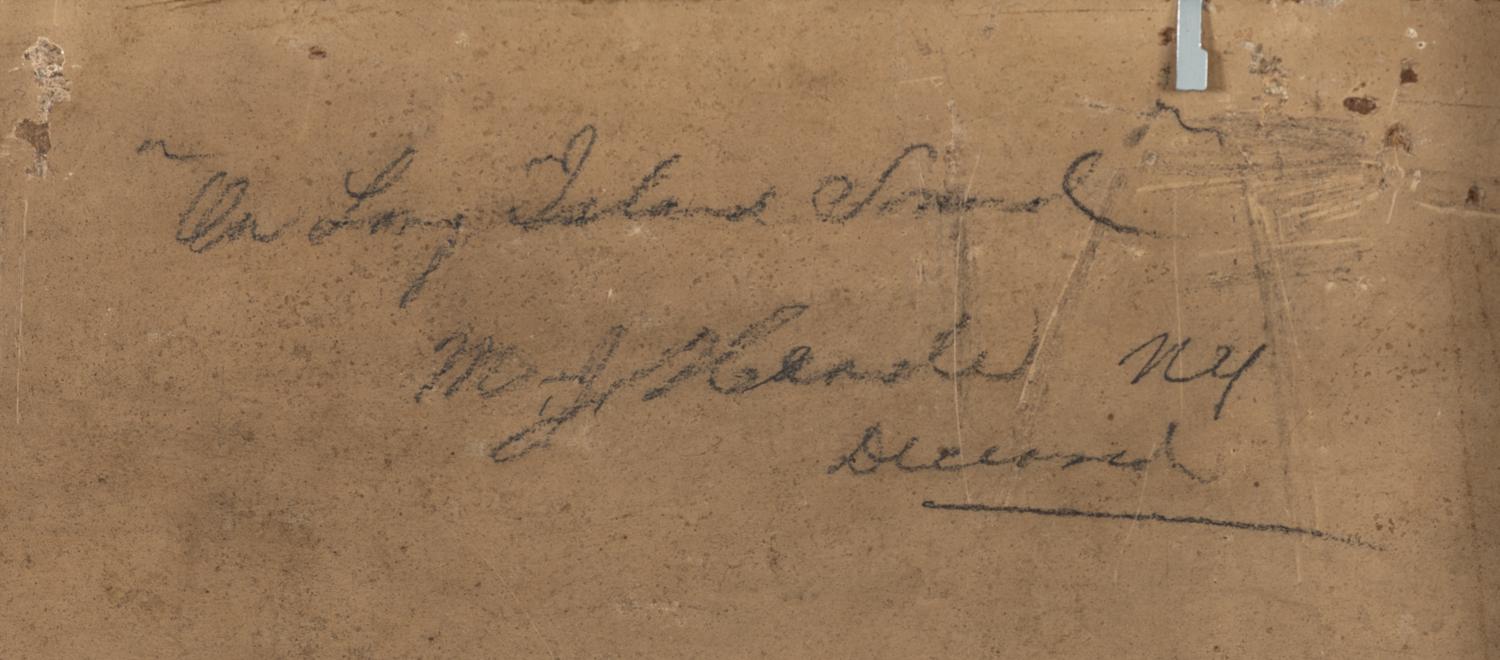 "On Long Island Sound"
M J Heade NY
Deceased